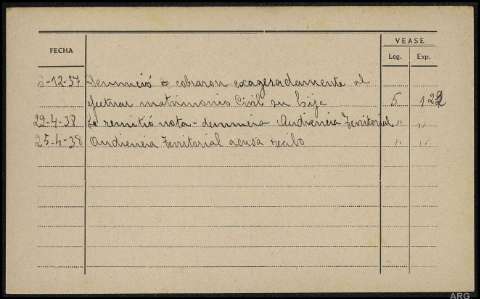 VEASE
FECHA Leg. Exp.
-12-37 Denunció cobraron exageradamente al
efectuar matrimonio Civil su hija 5 122
29-4-38 Se remitió nota-denuncia Audiencia Territorial " "
25-4-38 Audiencia Territorial acusa recibo " "
ARG